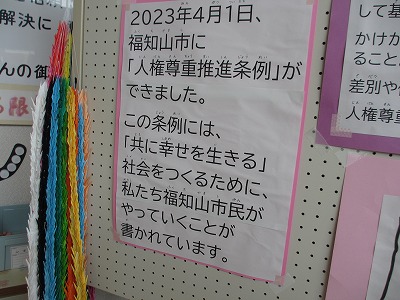 解決に
んの御
る限
2023年4月1日、
福知山市に
「人権尊重推進条例」が
できました。
この条例には、
「共に幸せを生きる」
社会をつくるために、
私たち福知山市民が
やっていくことが
書かれています。
して基
かけが
ること
差別や
人権尊重